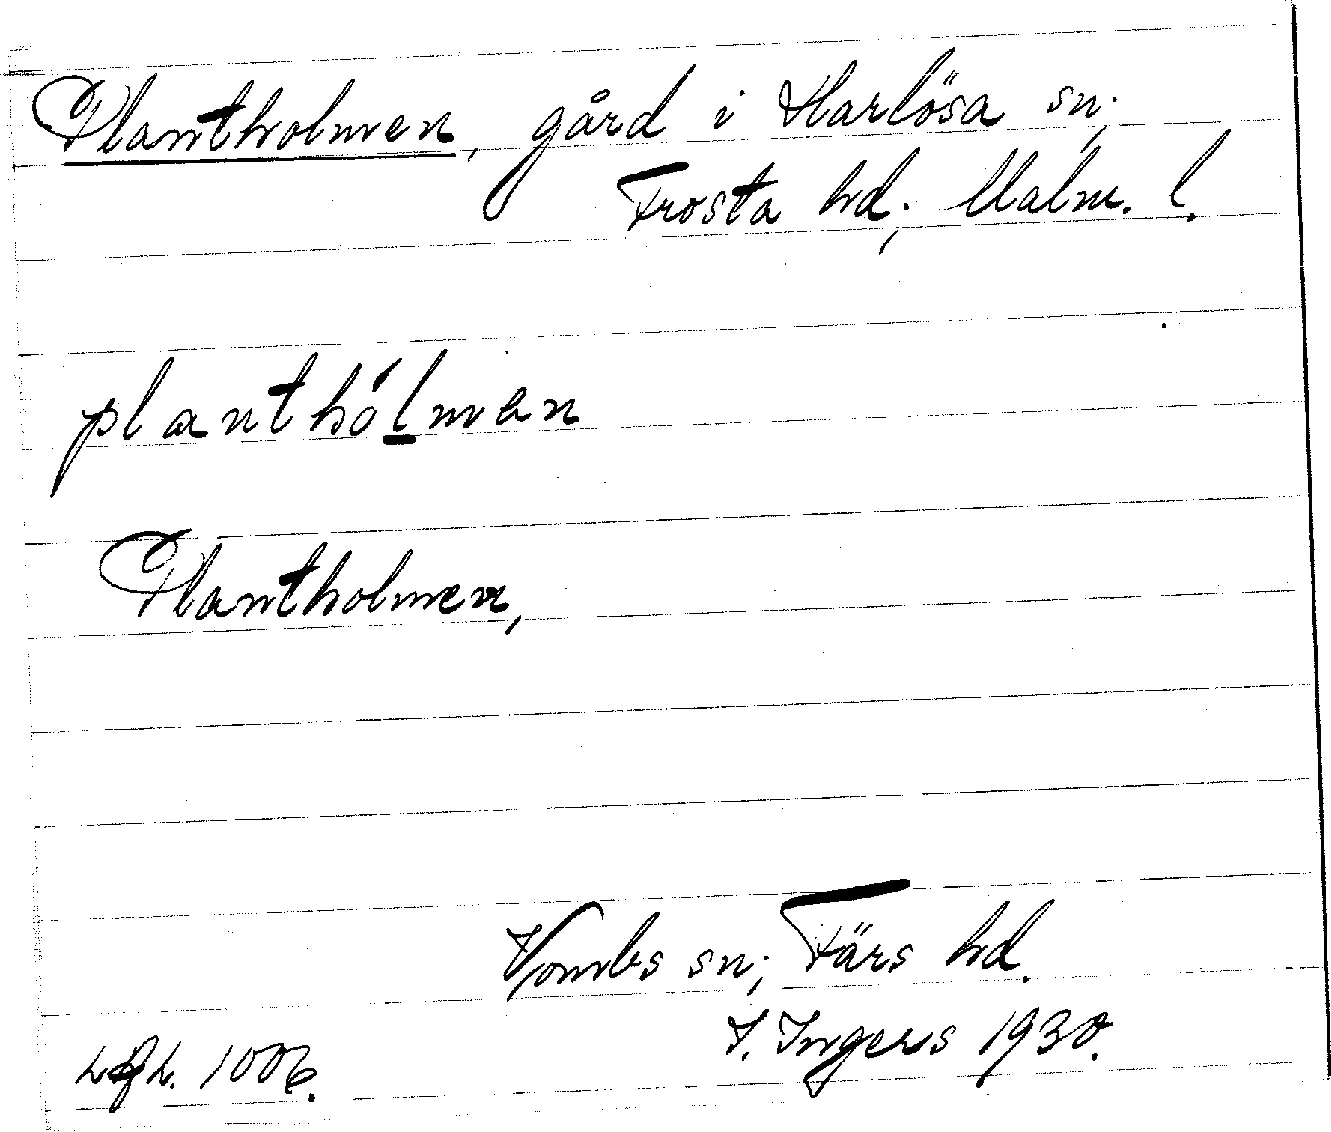 Plantholmen, gård i Harlösa sn.,
Frosta hd., Malm. l.
planthólmen
Plantholmen,
Vombs sn., Färs hd.
I. Ingers 1930.
1006.